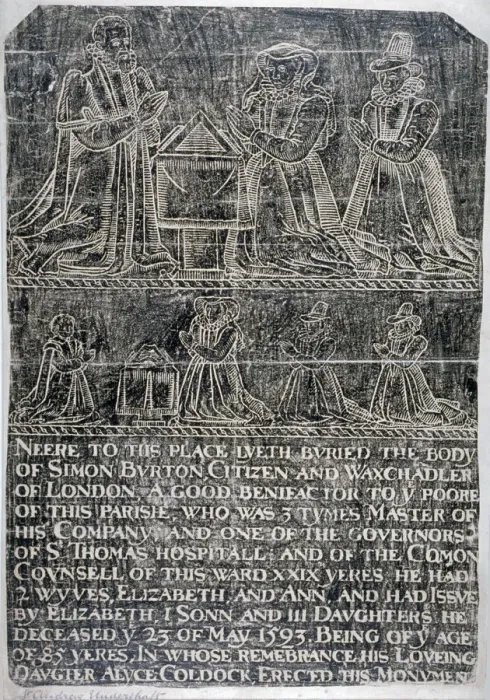 NEERE TO THIS PLACE LYETH BVRIED THE BODY
OF SIMON BVRTON, CITIZEN AND WAXCHADLER
OF LONDON, A GOOD BENIFACTOR TO Yͤ POORE
OF THIS PARISH, WHO WAS 3 TYMES MASTER OF
HIS COMPANY, AND ONE OF THE GOVERNORS
OF Sᵀ THOMAS HOSPITALL: AND OF THE COMON
COVNSELL OF THIS WARD XXIX YERES HE HAD
2 WYVES, ELIZABETH, AND ANN, AND HAD ISSVE
BY ELIZABETH, I SONN AND III DAVGHTERS HE
DECEASED Yͤ 23 OF MAY 1593, BEING OF Yͤ AGE
OF 85 YERES, IN WHOSE REMEBRANCE HIS LOVEING
DAVGTER ALYCE COLDOCK ERECTED THIS MONVMENT
St Andrew Undershaft